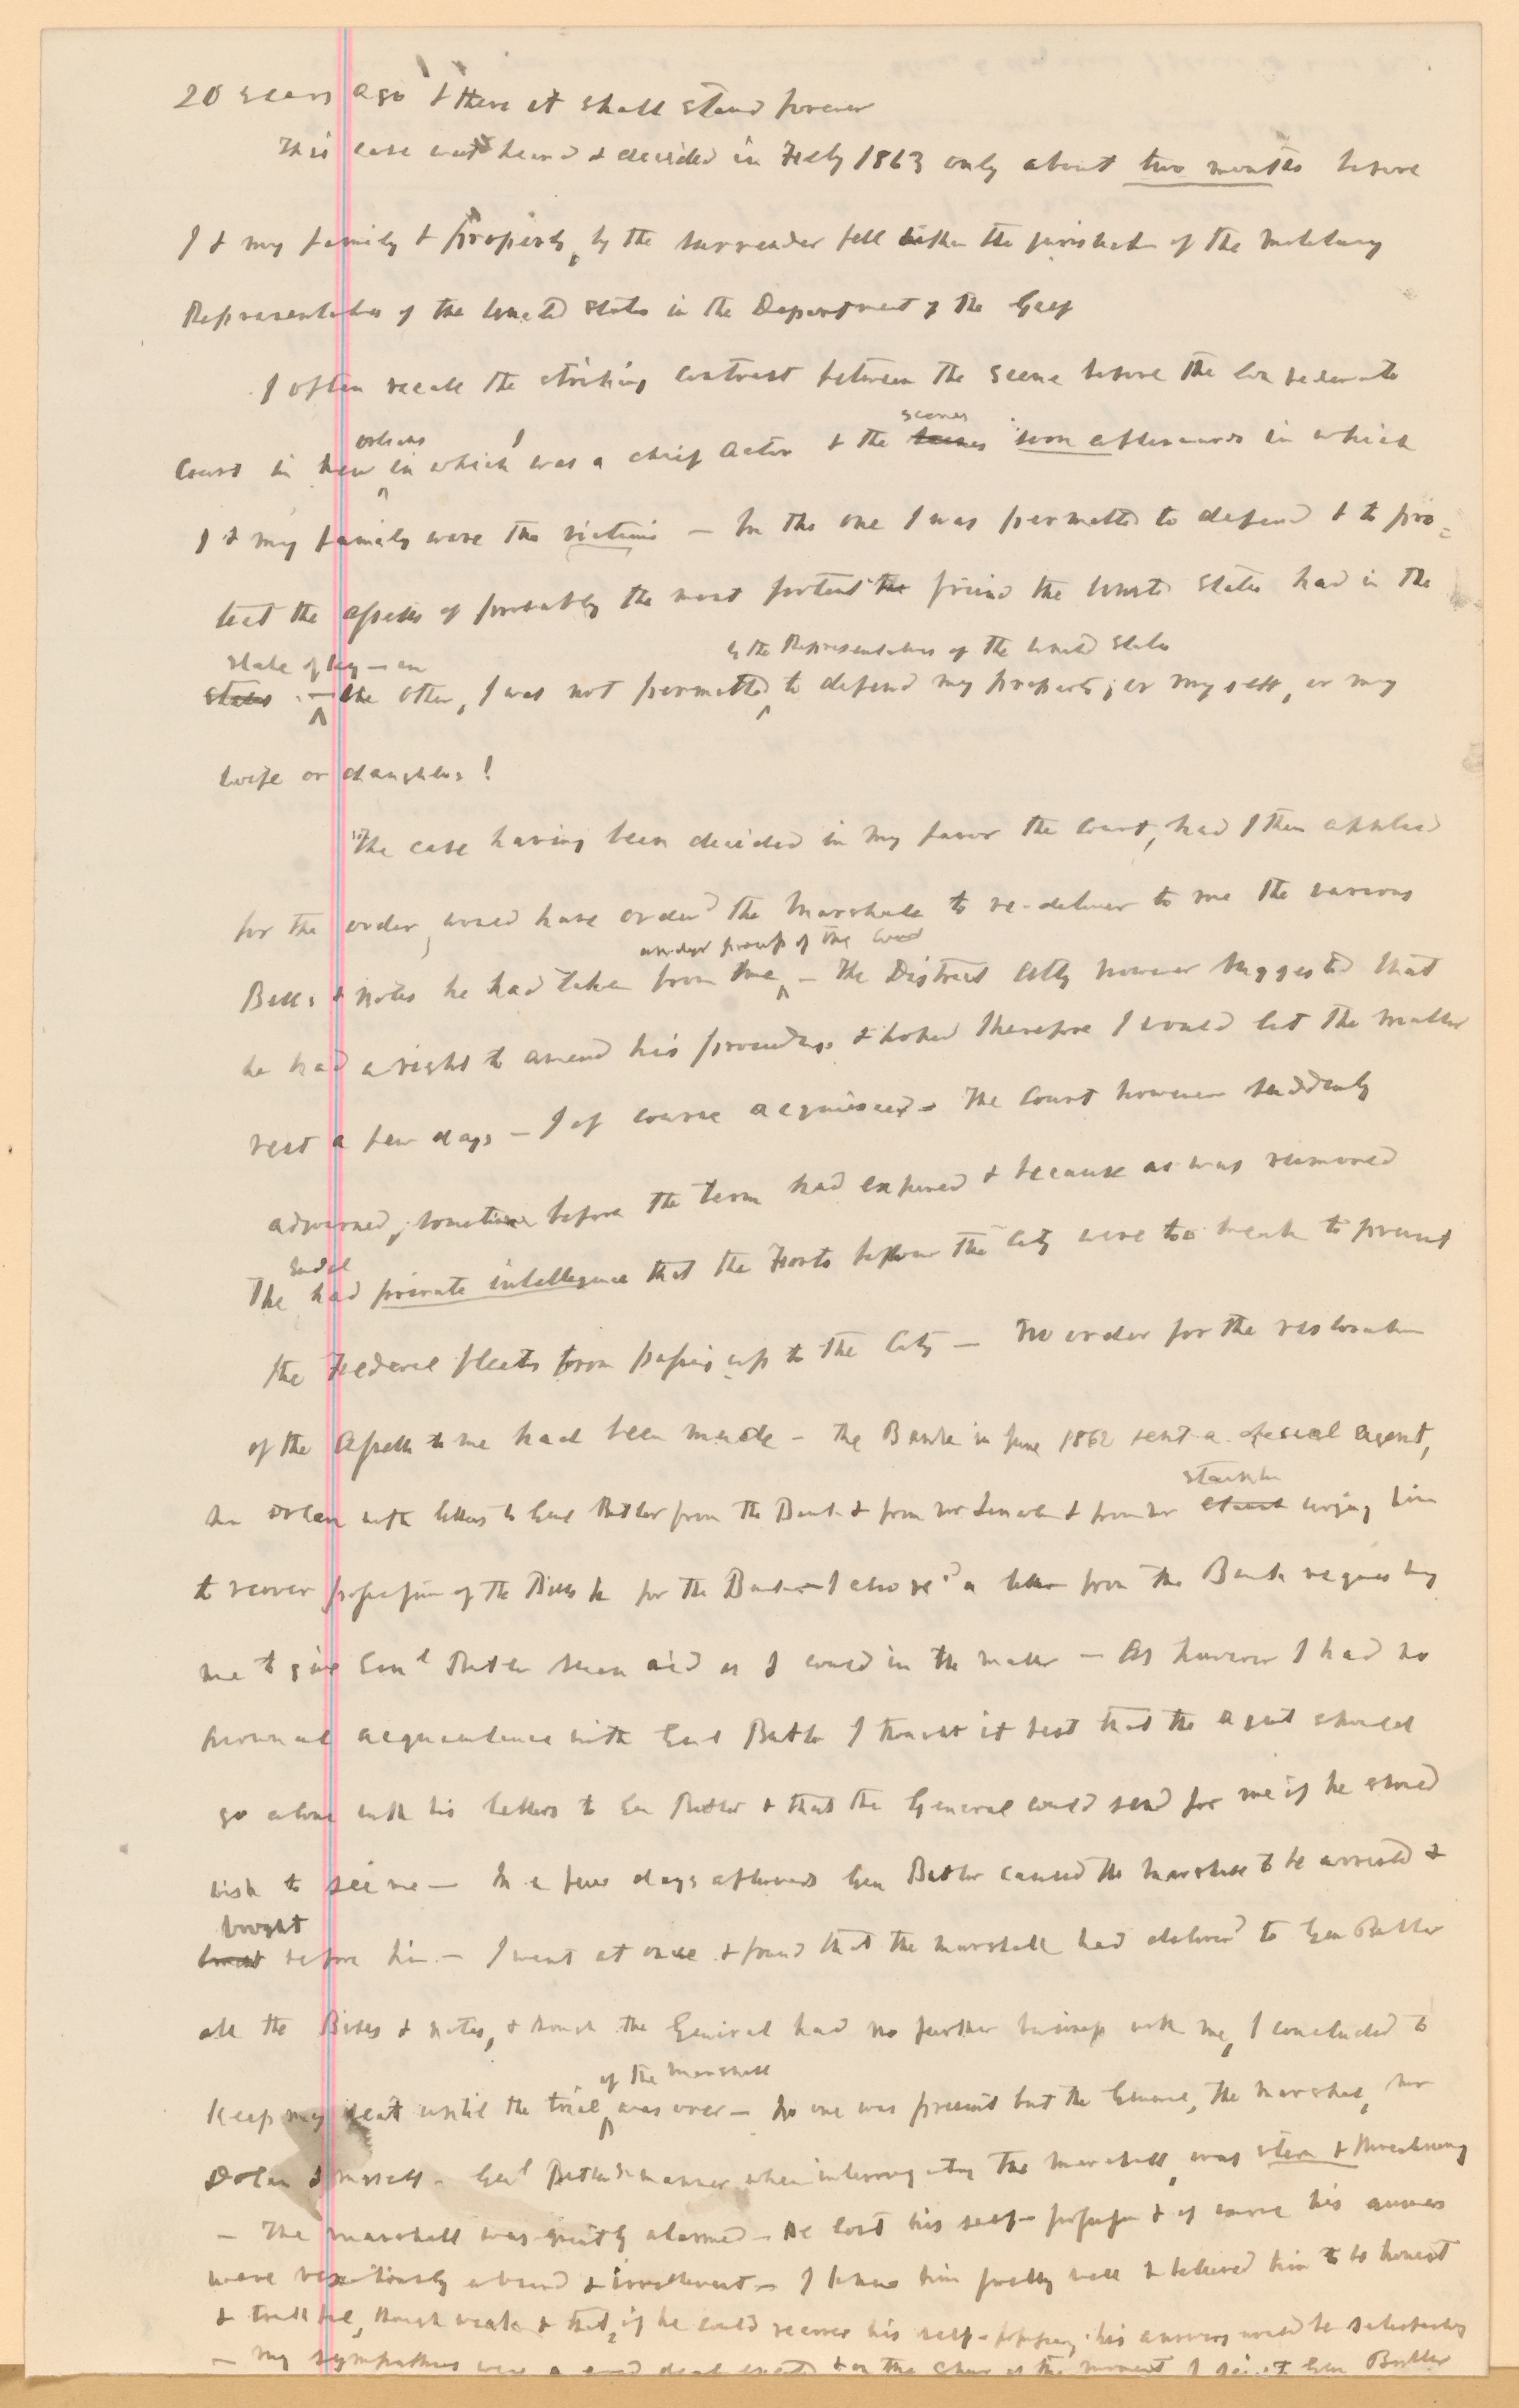 20 years ago & there it shall stand forever
This case was heard & decided in Feby 1863 only about two months before
I & my family & property, by the surrender fell within the of the military
Representatives of the United States in the Department of the Gulf
I often recall the striking contrast between the scene before the Confederate
scenes
orleans I
Court in New in which was a chief actor & the scenes soon afterwards in which
I & my family were the victims — In the one I was permitted to defend & to pro=
tect the assets of probably the most potent the friend the United States had in the
by the Representatives of the United States
State of Ky — in
states — the other, I was not permitted to defend my property, or my self, or my
wife or daughters!
The case having been decided in my favor the Court, had I then applied
for the order, would have order'd the Marshall to re-deliver to me the various
under process of the Court
Bills & notes he had taken from me — The District Atty however suggested that
he had a right to amend his proceedings & hoped therefore I would let the matter
rest a few days — I of course acquiesced — The Court however suddenly
adjourned, sometime before the term had expired & because as was rumored
The had private intelligence that the Forts below the City were too weak to prevent
the Federal fleets from passing up to the City — No order for the restoration
of the assets to me had been made — The Bank in June 1862 sent a special agent,
Mr Dolan with letters to Genl Butler from the Bank & from Mr Lincoln & from Mr urging him
to recover possession of the Bills for the Bank — I also recd a letter from the Bank requesting
me to give Genl Butler such aid as I could in the matter — As however I had no
personal acquaintance with Genl Butler I thought it best that the agent should
go alone with his letters to Gen Butler & that the General could send for me if he should
wish to see me — In a few days afterwards Gen Butler caused the Marshall to be arrested &
brought
before him — I went at once & found that the Marshall had deliver'd to Gen Butler
all the Bills & notes, & though the General had no further business with me, I concluded to
of the Marshall
Keep my seat until the trial was over — No one was present but the General, the Marshal, Mr
Dolan & myself — Genl Butler's manner when interrogating the Marshall, was stern & threatening
— The Marshall was greatly alarmed — He lost his self-possession & of course his answers
were vexatiously absurd & irrelevant — I knew him pretty well & believed him to be honest
& truthful, though weak & that, if he could recover his self-possession, his answers would be satisfactory
— My sympathies were a good deal & the moment I Gen Butler